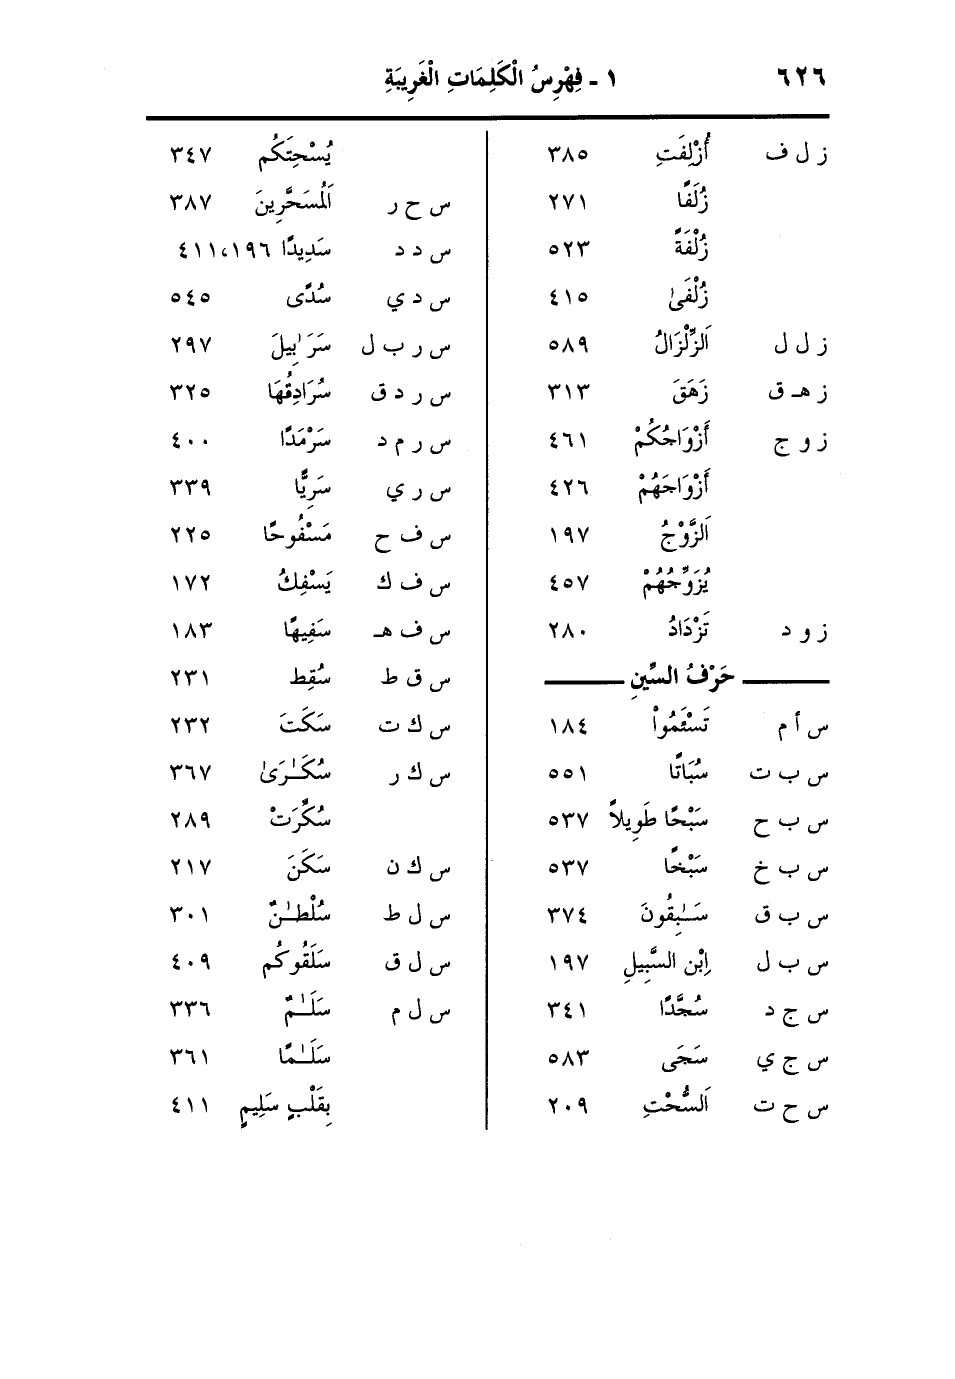 ٦٢٦
١ - فِهْرِسُ الْكَلِمَاتِ الْغَرِيبَةِ
ز ل ف أُزْلِفَتِ ٣٨٥
زُلَفًا ٢٧١
زُلْفَةً ٥٢٣
زُلْفَىٰ ٤١٥
ز ل ل اَلزِّلْزَالُ ٥٨٩
ز هـ ق زَهَقَ ٣١٣
ز و ج أَزْوَاجُكُمْ ٤٦١
أَزْوَاجَهُمْ ٤٢٦
اَلزَّوْجُ ١٩٧
يُزَوِّجُهُمْ ٤٥٧
ز و د تَزْدَادُ ٢٨٠
حَرْفُ السِّينِ
س أ م تَسْـَٔمُواْ ١٨٤
س ب ت سُبَاتًا ٥٥١
س ب ح سَبْحًا طَوِيلاً ٥٣٧
س ب خ سَبْخًا ٥٣٧
س ب ق سَـٰبِقُونَ ٣٧٤
س ب ل اِبْن السَّبِيلِ ١٩٧
س ج د سُجَّدًا ٣٤١
س ج ي سَجَى ٥٨٣
س ح ت اَلسُّحْتِ ٢٠٩
يُسْحِتَكُم ٣٤٧
س ح ر اَلْمُسَحَّرِينَ ٣٨٧
س د د سَدِيدًا ١٩٦، ٤١١
س د ي سُدًى ٥٤٥
س ر ب ل سَرَٰبِيلَ ٢٩٧
س ر د ق سُرَادِقُهَا ٣٢٥
س ر م د سَرْمَدًا ٤٠٠
س ر ي سَرِيًّا ٣٣٩
س ف ح مَسْفُوحًا ٢٢٥
س ف ك يَسْفِكُ ١٧٢
س ف هـ سَفِيهًا ١٨٣
س ق ط سُقِط ٢٣١
س ك ت سَكَتَ ٢٣٢
س ك ر سُكَـٰرَىٰ ٣٦٧
سُكِّرَتْ ٢٨٩
س ك ن سَكَنَ ٢١٧
س ل ط سُلْطَـٰنٌ ٣٠١
س ل ق سَلَقُوكُم ٤٠٩
س ل م سَلَـٰمٌ ٣٣٦
سَلَـٰمًا ٣٦١
بِقَلْبٍ سَلِيمٍ ٤١١